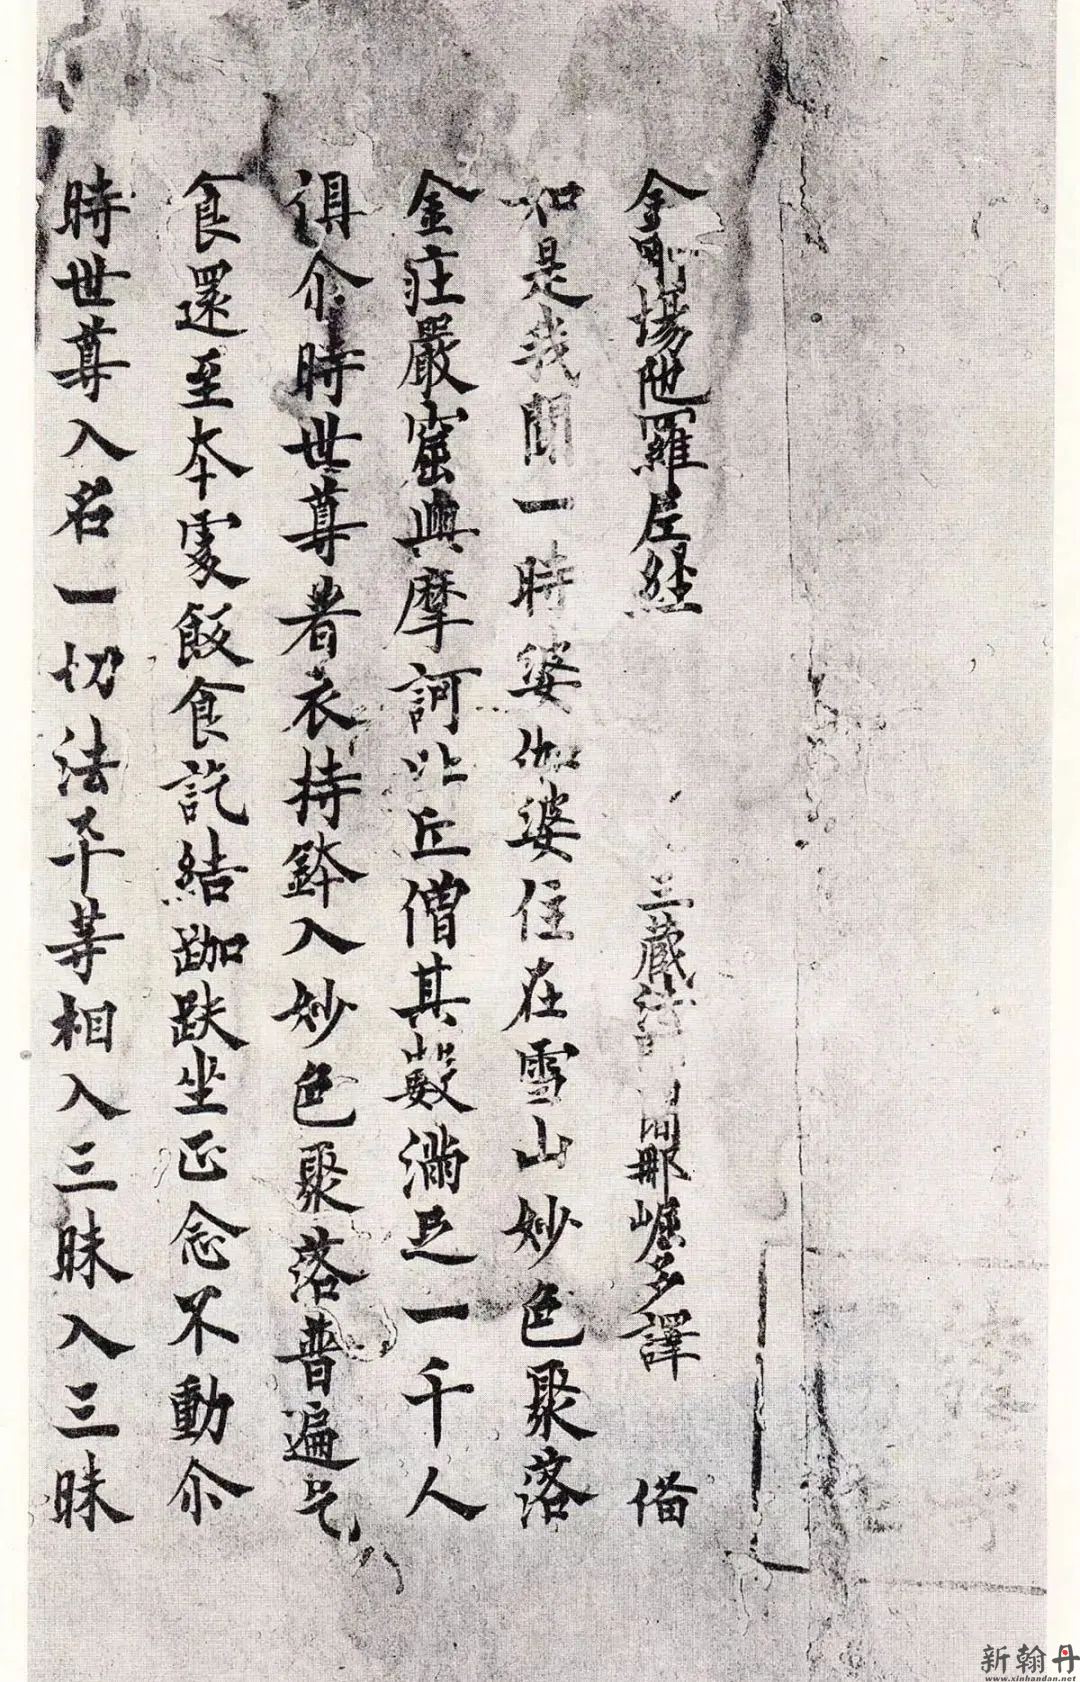 金剛場陁羅尼経 三藏法 闍那崛多譯 俻
如是我聞一時婆伽婆住在雪山妙色聚落
金莊嚴窟與摩訶比丘僧其數滿足一千人
俱尒時世尊著衣持鉢入妙色聚落普遍乞
食還至本處飯食訖結跏趺坐正念不動尒
時世尊入名一切法平等相入三昧入三昧
新翰丹
www.xinhandan.net